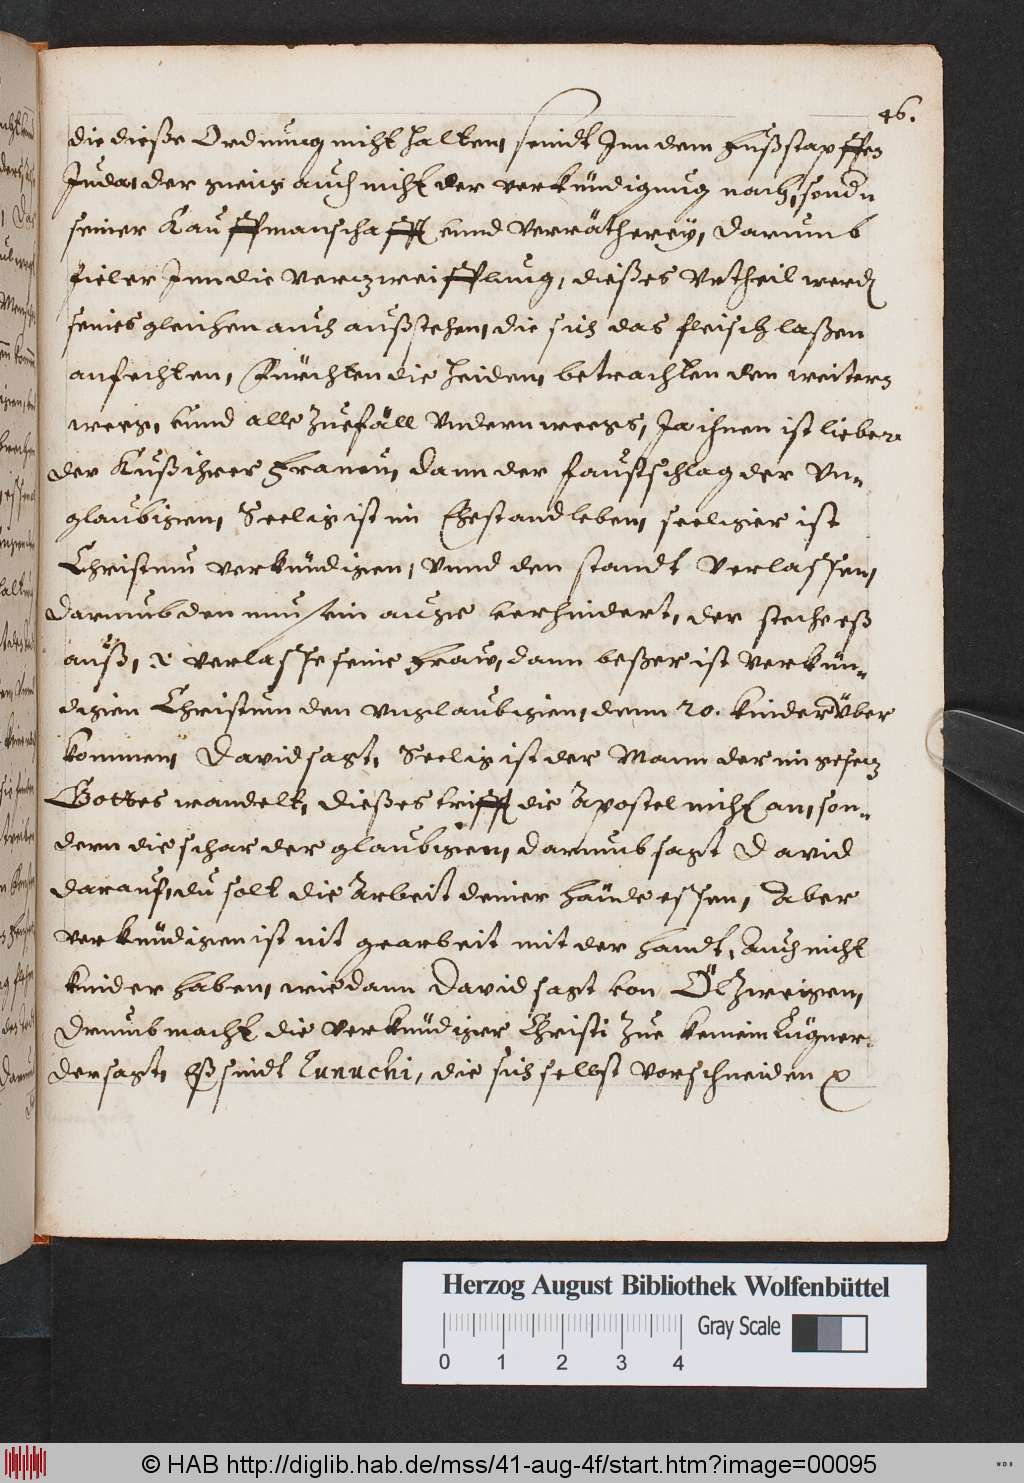 46.
die dieße Ordnung nicht halten, seindt Inn dem fußstapffen
Juda, der gieng auch nicht der verkündigung nach, sondn
seiner Kauffmanschafft vnnd Verrätherey, darumb
fiel er Inn die verzweifflung, dießes Vrtheil werdn
seines gleichen auch außstehen, die sich das fleisch laßen
anfechten, fürchten die heiden, betrachten den weitern
weeg, vnnd alle Zuefäll Vndern weegs, Ja ihnen ist lieber
der Kuß ihrer frauen, dann der faustschlag der Vn-
glaubigen, Seelig ist im Ehestand leben, seeliger ist
Christum verkündigen, Vnnd den standt Verlassen,
darumb den nun sein auge verhindert, der steche eß
auß, verlasse seine fraw, dann beßer ist Verkün-
digen Christum den vnglaubigen, denn 20. kinder über
kommen, David sagt, Seelig ist der Mann der im gesetz
Gottes wandelt, dießes trifft die Apostel nicht an, son-
dern die schar der glaubigen, darumb sagt David
darauf, du solt die Arbeit deiner hände essen, Aber
verkündigen ist nit gearbeit mit der handt, Auch nicht
kinder haben, wie dann David sagt von Ölzweigen,
Drumb macht die verkündiger Christi Zue keinem Lügner,
der sagt, Eß sindt Eunuchi, die sich selbst Vorschneiden
Herzog August Bibliothek Wolfenbüttel
Gray Scale
0 1 2 3 4
© HAB http://diglib.hab.de/mss/41-aug-4f/start.htm?image=00095